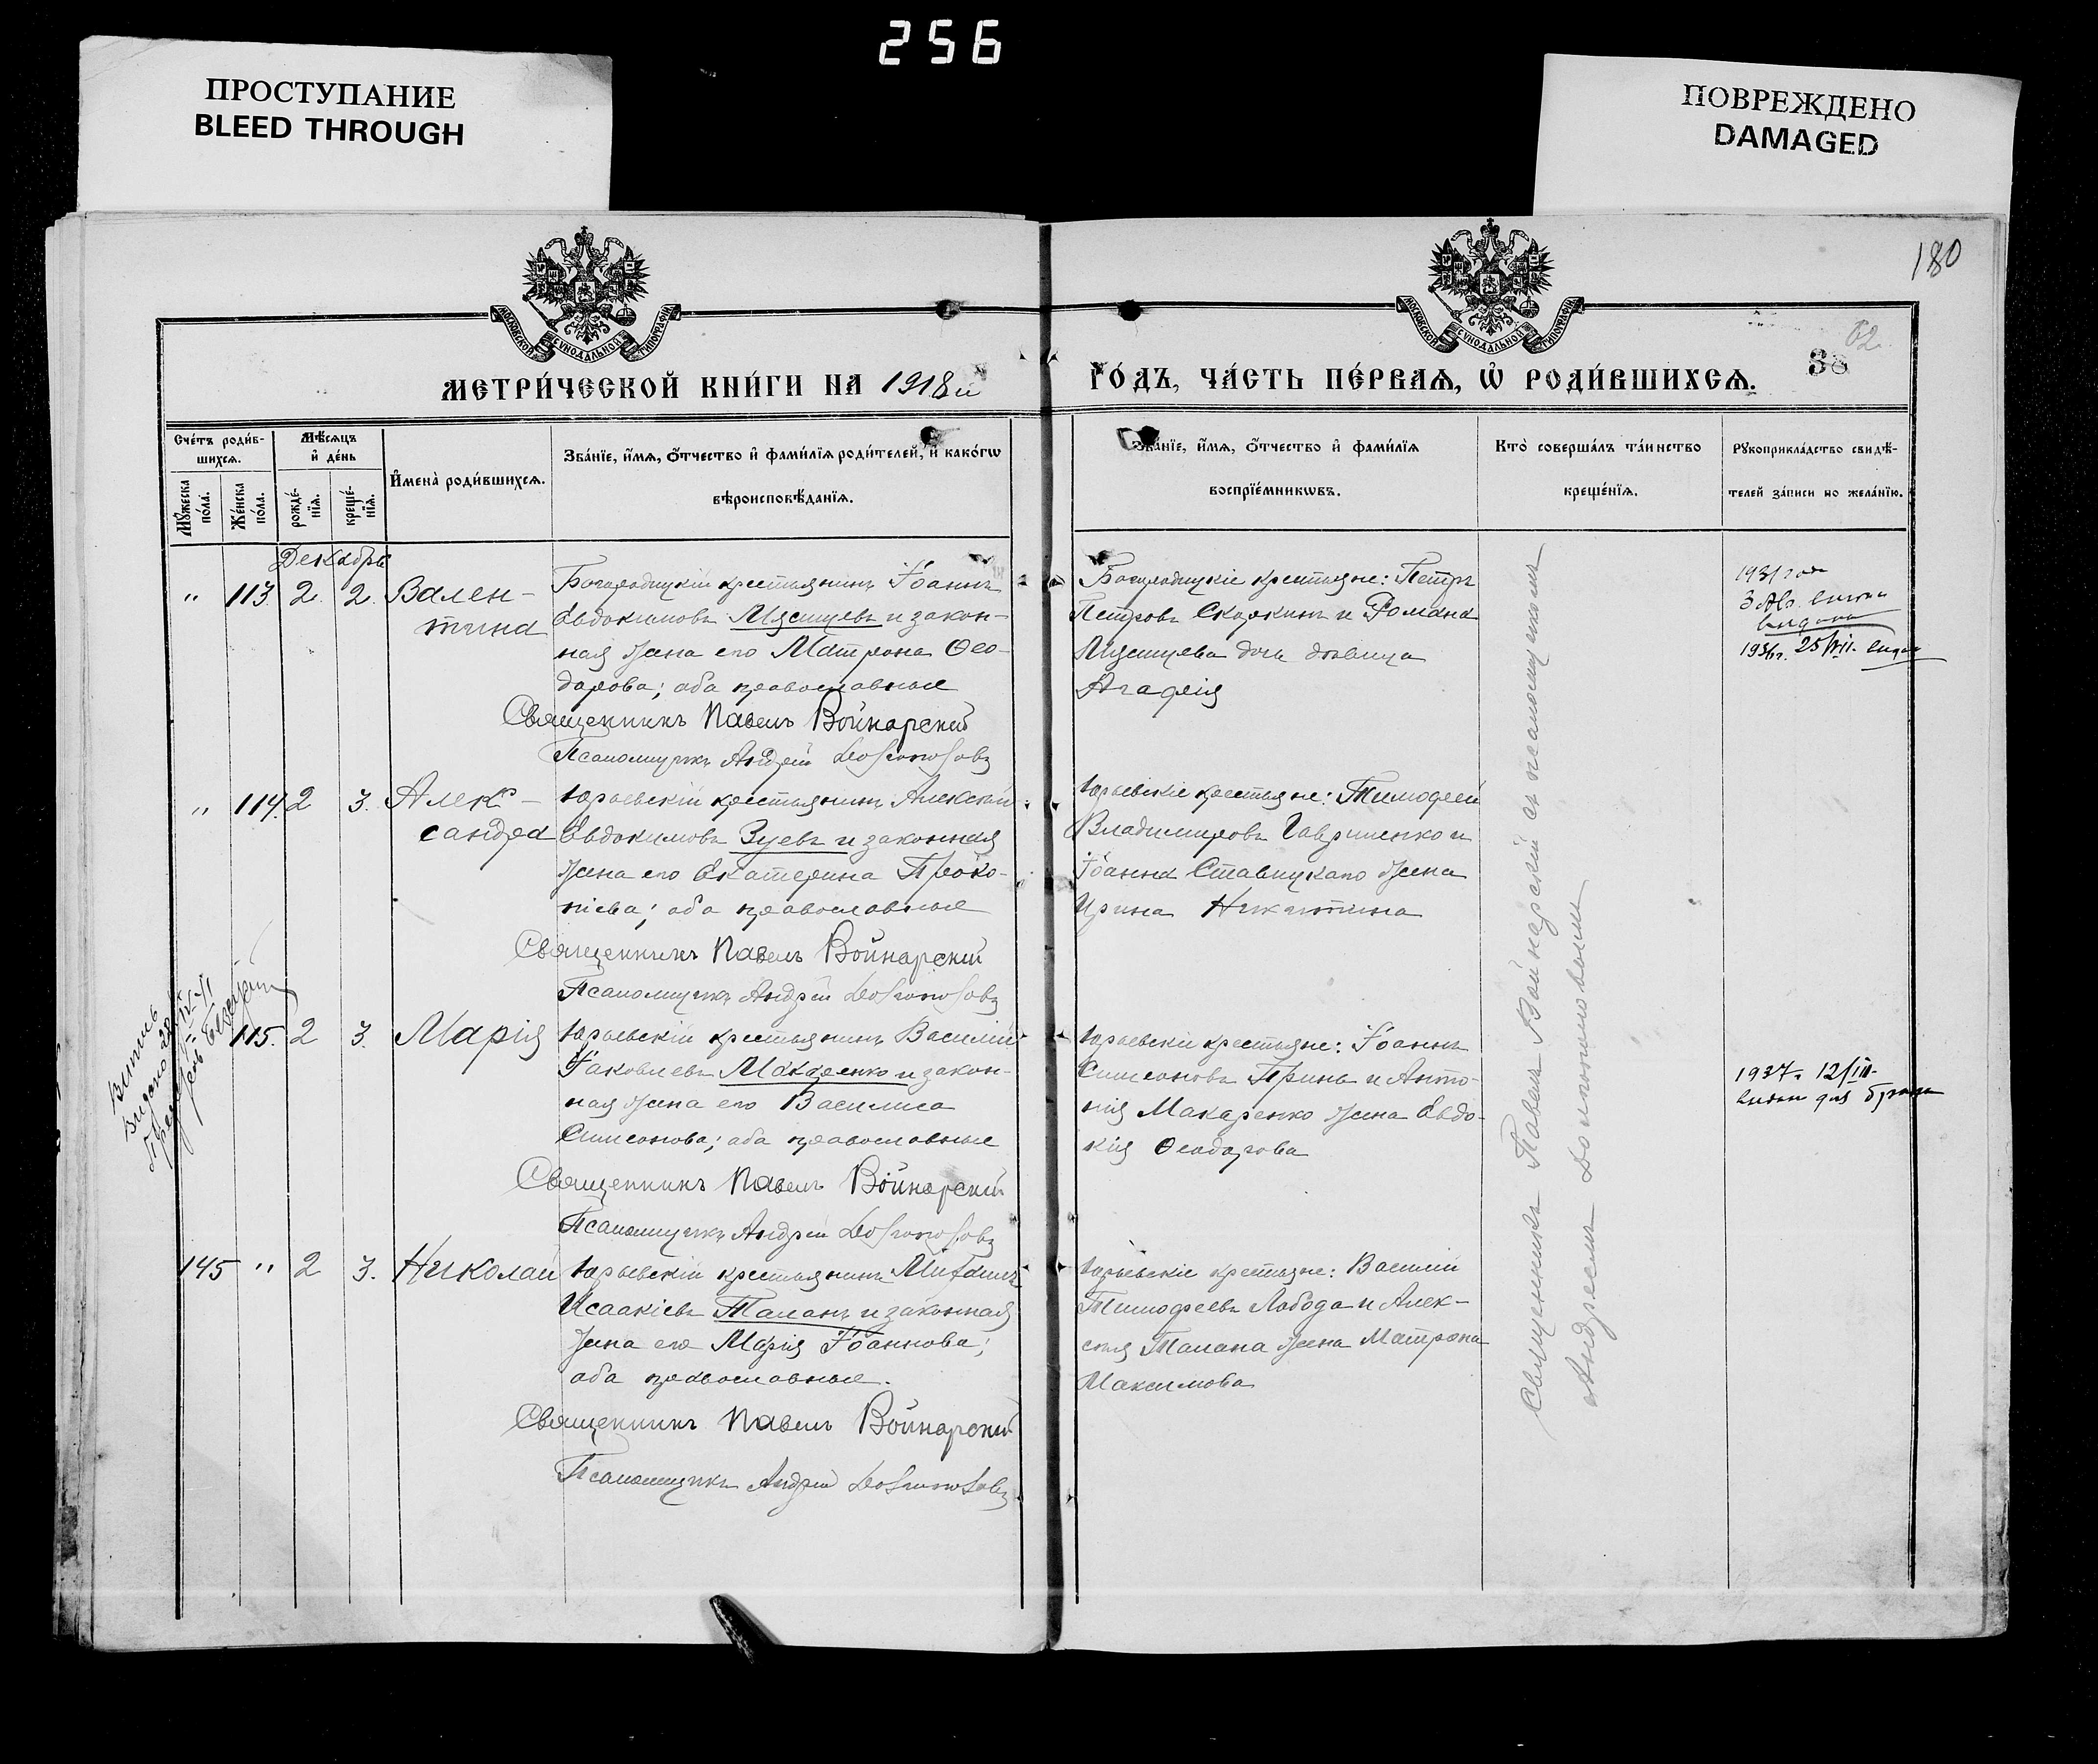 256
ПРОСТУПАНИЕ
BLEED THROUGH
ПОВРЕЖДЕНО
DAMAGED
180
МОСКОВСКОЙ СѴНОДАЛЬНОЙ ТИПОГРАФІИ
МОСКОВСКОЙ СѴНОДАЛЬНОЙ ТИПОГРАФІИ
62
38
МЕТРИ́ЧЕСКОЙ КНИ́ГИ НА 1918й
ГО́ДЪ, ЧА́СТЬ ПЕ́РВАѦ, Ѿ РОДИ́ВШИХСѦ.
Сче́тъ роди́в-
шихсѧ.
Мꙋ́жеска по́ла.
Же́нска по́ла.
Мѣ́сѧцъ
и҆ де́нь
рожде́-
нїѧ.
креще́-
нїѧ.
И҆мена̀ роди́вшихсѧ.
Зва́нїе, и҆́мѧ, ѻ҆́тчество и҆ фами́лїѧ роди́телей, и҆ како́гѡ
вѣроисповѣ́данїѧ.
Зва́нїе, и҆́мѧ, ѻ҆́тчество и҆ фами́лїѧ
воспрїе́мникѡвъ.
Кто̀ соверша́лъ та́инство
креще́нїѧ.
Рꙋкоприкла́дство свидѣ́-
телей за́писи по жела́нїю.
Декабрь
" 113. 2. 2. Вален-
тина
Богородицкій крестьянинъ Іоаннъ
Евдокимовъ Мясищевъ и закон-
ная жена его Матрона Ѳео-
дорова; оба православные
Священникъ Павелъ Войнарскій
Псаломщикъ Андрей
Богородицкіе крестьяне: Петръ
Петровъ Скоркинъ и Романа
Мясищева дочь дѣвица
Агафія
1931 год
3
1936г. 25/VII.
" 114. 2 3. Алек-
сандра
Юрьевскій крестьянинъ Алексѣй
Евдокимовъ Зуевъ и законная
жена его Екатерина Проко-
піева; оба православные
Священникъ Павелъ Войнарскій
Псаломщикъ Андрей
Юрьевскіе крестьяне: Тимофей
Владимировъ Гавриленко и
Іоанна Ставицкаго жена
Ирина Никитина
115. 2 3. Марія
Юрьевскій крестьянинъ Василій
Іаковлевъ Макаренко и закон-
ная жена его Василиса
Симеонова; оба православные
Священникъ Павелъ Войнарскій
Псаломщикъ Андрей
Юрьевскіе крестьяне: Іоаннъ
Симеоновъ и Анто-
нія Макаренко жена Евдо-
кія Ѳеодорова
1937г. 12/III
145 " 2 3. Николай
Юрьевскій крестьянинъ Михаилъ
Исаакіевъ Таланъ и законная
жена его Марія Іоаннова;
оба православные.
Священникъ Павелъ Войнарскій
Псаломщикъ Андрей
Юрьевскіе крестьяне: Василій
Тимофеевъ Лобода и Алек-
сѣя Талана жена Матрона
Максимова
Священникъ Павелъ Войнарскій съ псаломщикомъ
Андреемъ